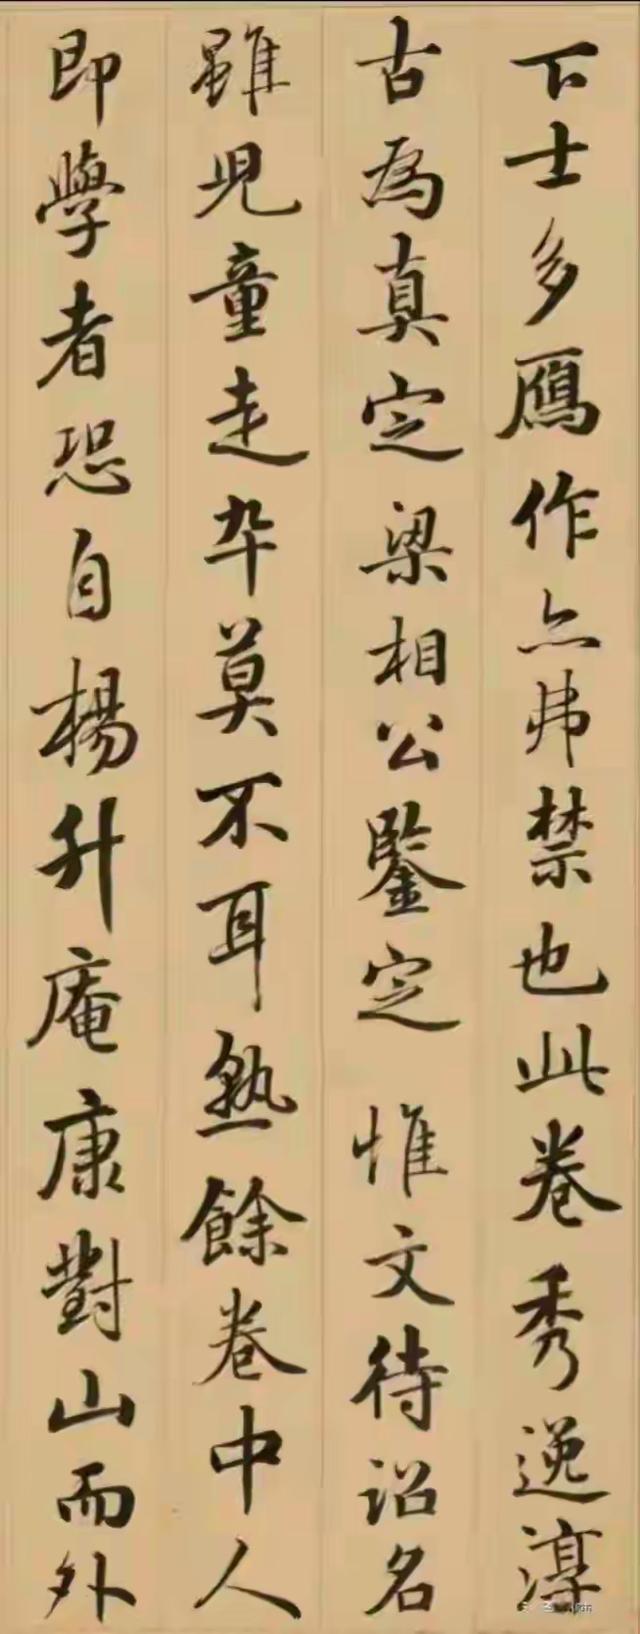 下士多贋作亦弗禁也此卷秀逸淳
古為真定梁相公鑒定惟文待詔名
雖児童走卒莫不耳熟餘卷中人
即學者恐自楊升庵康對山而外